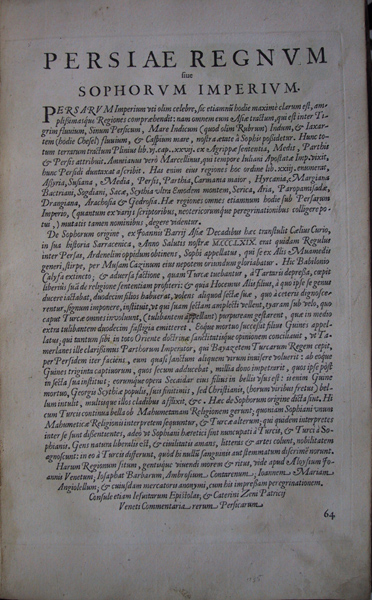 PERSIAE REGNVM
siue
SOPHORVM IMPERIVM.
PERSARVM Imperium vti olim celebre, sic etiamnũ hodie maximè clarum est, am-
plissimasque Regiones compræhendit: nam omnem eum Asiæ tractum, qui est inter Ti-
grim fluuium, Sinum Persicum, Mare Indicum (quod olim Rubrum) Indum, & Iaxar-
tem (hodie Chesel) fluuium, & Caspium mare, nostra ætate à Sophi possidetur. Hunc to-
tum terrarum tractum Plinius lib. vj. cap. xxvij. ex Agrippæ sententia, Medis, Parthia
& Persis attribuit. Ammianus verò Marcellinus, qui tempore Iuliani Apostatæ Imp. vixit,
hunc Persidi duntaxat ascribit. Has enim eius regiones hoc ordine lib. xxiij. enumerat,
Assyria, Susiana, Media, Persis, Parthia, Carmania maior, Hyrcania, Margiana
Bactriani, Sogdiani, Sacæ, Scythia vltra Emodem montem, Serica, Aria, Paropanisadæ,
Drangiana, Arachosia & Gedrosia. Hæ regiones omnes etiamnum hodie sub Persarum
Imperio, (quantum ex varijs scriptoribus, neotericorumque peregrinationibus colligere potu-
i) mutatis tamen nominibus, degere videntur.
De Sophorum origine, ex Ioannis Barrij Asiæ Decadibus hæc transtulit Cælius Curio,
in sua historia Sarracenica, Anno Salutis nostræ MCCCLXIX. erat quidam Regulus
inter Persas, Ardenelim oppidum obtinens, Sophi appellatus, qui se ex Alis Muamedis
generi, stirpe, per Musam Cazinum eius nepotem oriundum gloriabatur. Hic Babylonio
Calysa extincto, & aduersa factione, quam Turcæ tuebantur, à Tartaris depressa, cœpit
liberius suã de religione sententiam profiteri: & quia Hocenus Alis filius, à quo ipse se genus
ducere iactabat, duodecim filios habuerat, volens aliquod sectæ suæ, quo à ceteris dignosce-
rentur, signum imponere, instituit, vt qui suam sectam amplecti vellent, tyaram sub velo, quo
caput Turcæ omnes inuoluunt, (tulibantem appellant) purpuream gestarent, quæ in medio
extra tulibantem duodecim fastigia emitteret. Eoque mortuo successit filius Guines appel-
latus, qui tantum sibi, in toto Oriente doctrinæ sanctitatisque opinionem conciliauit, vt Ta-
merlanes ille clarissimus Parthorum Imperator, qui Bayazetem Turcarum Regem cepit,
per Persidem iter faciens, eum quasi sanctum aliquem virum inuisere voluerit: ab eoque
Guines triginta captiuorum, quos secum adducebat, millia dono impetrauit, quos ipse post
in secta sua instituit; eorumque opera Secaidar eius filius in bellis vsus est: nenim Guine
mortuo, Georgis Scythiæ populis, suis finitimis, sed Christianis, (horum viribus fretus) bel-
lum intulit, multisque illos cladibus affixit, &c. Hæc de Sophorum origine dicta sint. Hi
cum Turcis continua bella ob Mahumetanam Religionem gerunt; quoniam Sophiani vnum
Mahumeticæ Religionis interpretem sequuntur, & Turcæ alterum: qui quidem interpretes
inter se sunt dissentientes, adeò vt Sophiani hæretici sint nuncupati à Turcis, & Turci à So-
phianis. Gens natura liberalis est, & ciuilitatis amans, litteras & artes colunt, nobilitatem
agnoscunt: in eo à Turcis differunt, quòd hi nullũ sanguinis aut stemmatum discrimẽ norunt.
Harum Regionum situm, gentiumque viuendi morem & ritus, vide apud Aloysium Ioan-
nis Venetum, Iosaphat Barbarum, Ambrosium Contarenum, Ioannem Mariam
Angiolellum; & cuiusdam mercatoris anonymi, cum his impressam peregrinationem,
Consule etiam Iesuitarum Epistolas, & Caterini Zeni Patricij
Veneti Commentaria rerum Persicarum.
64